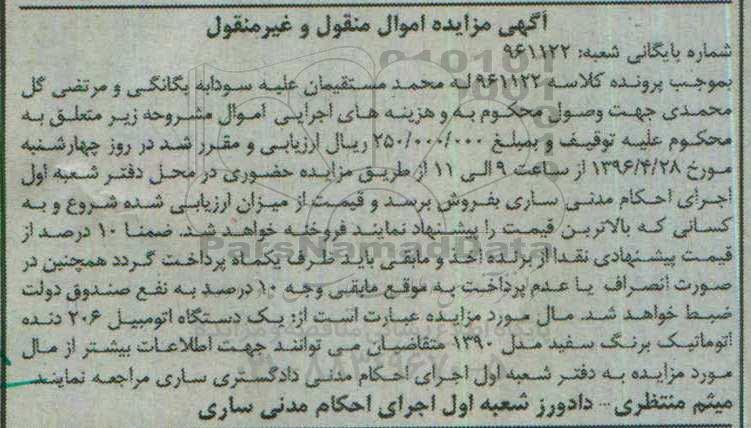 آگهی مزایده اموال منقول و غیرمنقول
شماره بایگانی شعبه: ۹۶۱۱۲۲
بموجب پرونده کلاسه ۹۶۱۱۲۲ له محمد مستقیمان علیه سودابه یگانگی و مرتضی گل
محمدی جهت وصول محکوم به و هزینه های اجرایی اموال مشروحه زیر متعلق به
محکوم علیه توقیف و بمبلغ ۲۵۰/۰۰۰/۰۰۰ ریال ارزیابی و مقرر شد در روز چهارشنبه
مورخ ۱۳۹۶/۴/۲۸ از ساعت ۹ الی ۱۱ از طریق مزایده حضوری در محل دفتر شعبه اول
اجرای احکام مدنی ساری بفروش برسد و قیمت از میزان ارزیابی شده شروع و به
کسانی که بالاترین قیمت را پیشنهاد نمایند فروخته خواهد شد. ضمنا ۱۰ درصد از
قیمت پیشنهادی نقدا از برنده اخذ و مابقی باید ظرف یکماه پرداخت گردد همچنین در
صورت انصراف یا عدم پرداخت به موقع مابقی وجه ۱۰ درصد به نفع صندوق دولت
ضبط خواهد شد. مال مورد مزایده عبارت است از: یک دستگاه اتومبیل ۲۰۶ دنده
اتوماتیک برنگ سفید مدل ۱۳۹۰ متقاضیان می توانند جهت اطلاعات بیشتر از مال
مورد مزایده به دفتر شعبه اول اجرای احکام مدنی دادگستری ساری مراجعه نمایند
میثم منتظری... دادورز شعبه اول اجرای احکام مدنی ساری
ParsNamadData